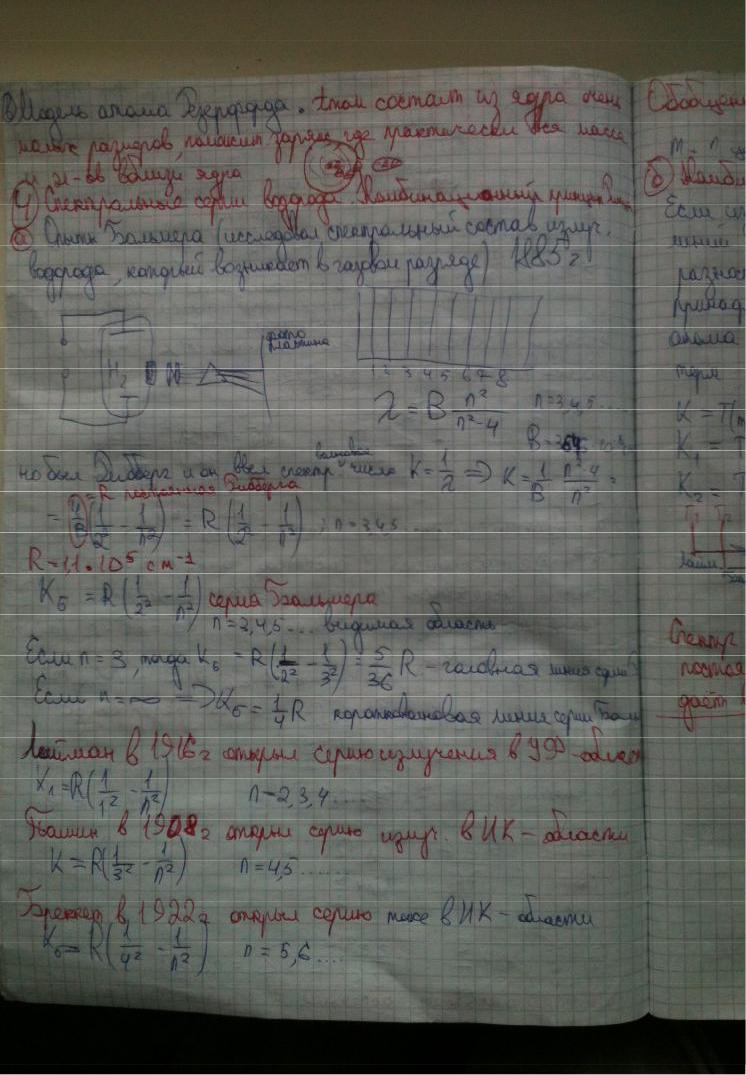 в) Модель атома Резерфорда. Атом состоит из ядра очень
малых размеров, где практически вся масса
вблизи ядра
4) Спектральные серии водорода. Комбинационный принцип
а) Опыты Бальмера (исследовал спектральный состав излуч.
водорода, который возникает в газовом разряде) 1885 г
фото
пластина
H2
1 2 3 4 5 6 7 8
λ = B n²/(n²-4) n=3,4,5....
B=
но был Ридберг и он ввел спектр. волновое число K = 1/λ ⇒ K = 1/B · (n²-4)/n² =
= R постоянная Ридберга
= 1/B (1/2² - 1/n²) = R (1/2² - 1/n²) ; n=3,4,5 ...
R = 1,1 · 10⁵ см⁻¹
Kб = R(1/2² - 1/n²) серия Бальмера
n=3,4,5... видимая область
Если n=3, тогда Kб = R(1/2² - 1/3²) = 5/36 R - головная линия серии Б
Если n=∞ ⇒ Kб = 1/4 R коротковолновая линия серии Баль
Лайман в 1916г открыл серию излучения в УФ-облас
K1=R(1/1² - 1/n²) n=2,3,4.....
Пашин в 1908г открыл серию излуч. в ИК-области
K = R(1/3² - 1/n²) n=4,5......
Бреккет в 1922г открыл серию тоже в ИК-области
Kб = R(1/4² - 1/n²) n=5,6....
Обобщен
m n
б) Комби
Если
линий
разнос
принад
атома
терм
K = T(m
K1 = T
K2 = T
Лайм.
Спектр
постоя
даёт